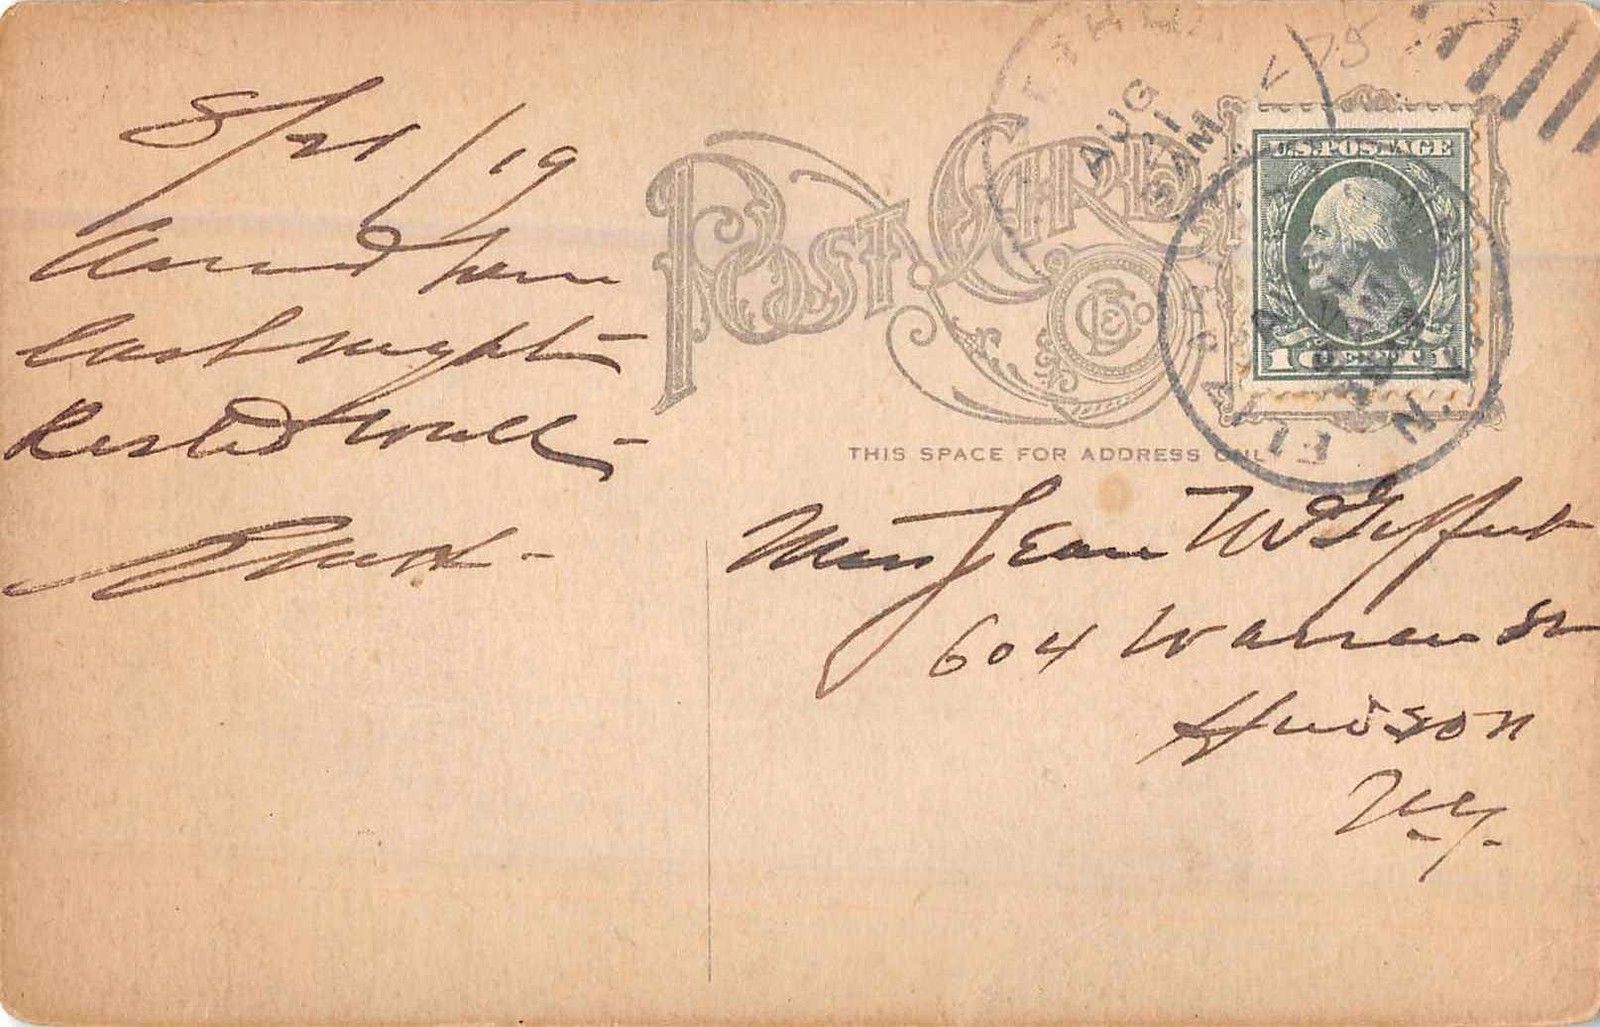 8/21/19
Arrived here
last night -
Rested well -
POST CARD
THIS SPACE FOR ADDRESS ONLY
AUG
21
AM
U.S. POSTAGE
1 CENT 1
N.Y.
Miss Jean McGiffert
604 Warren St
Hudson
N.Y.